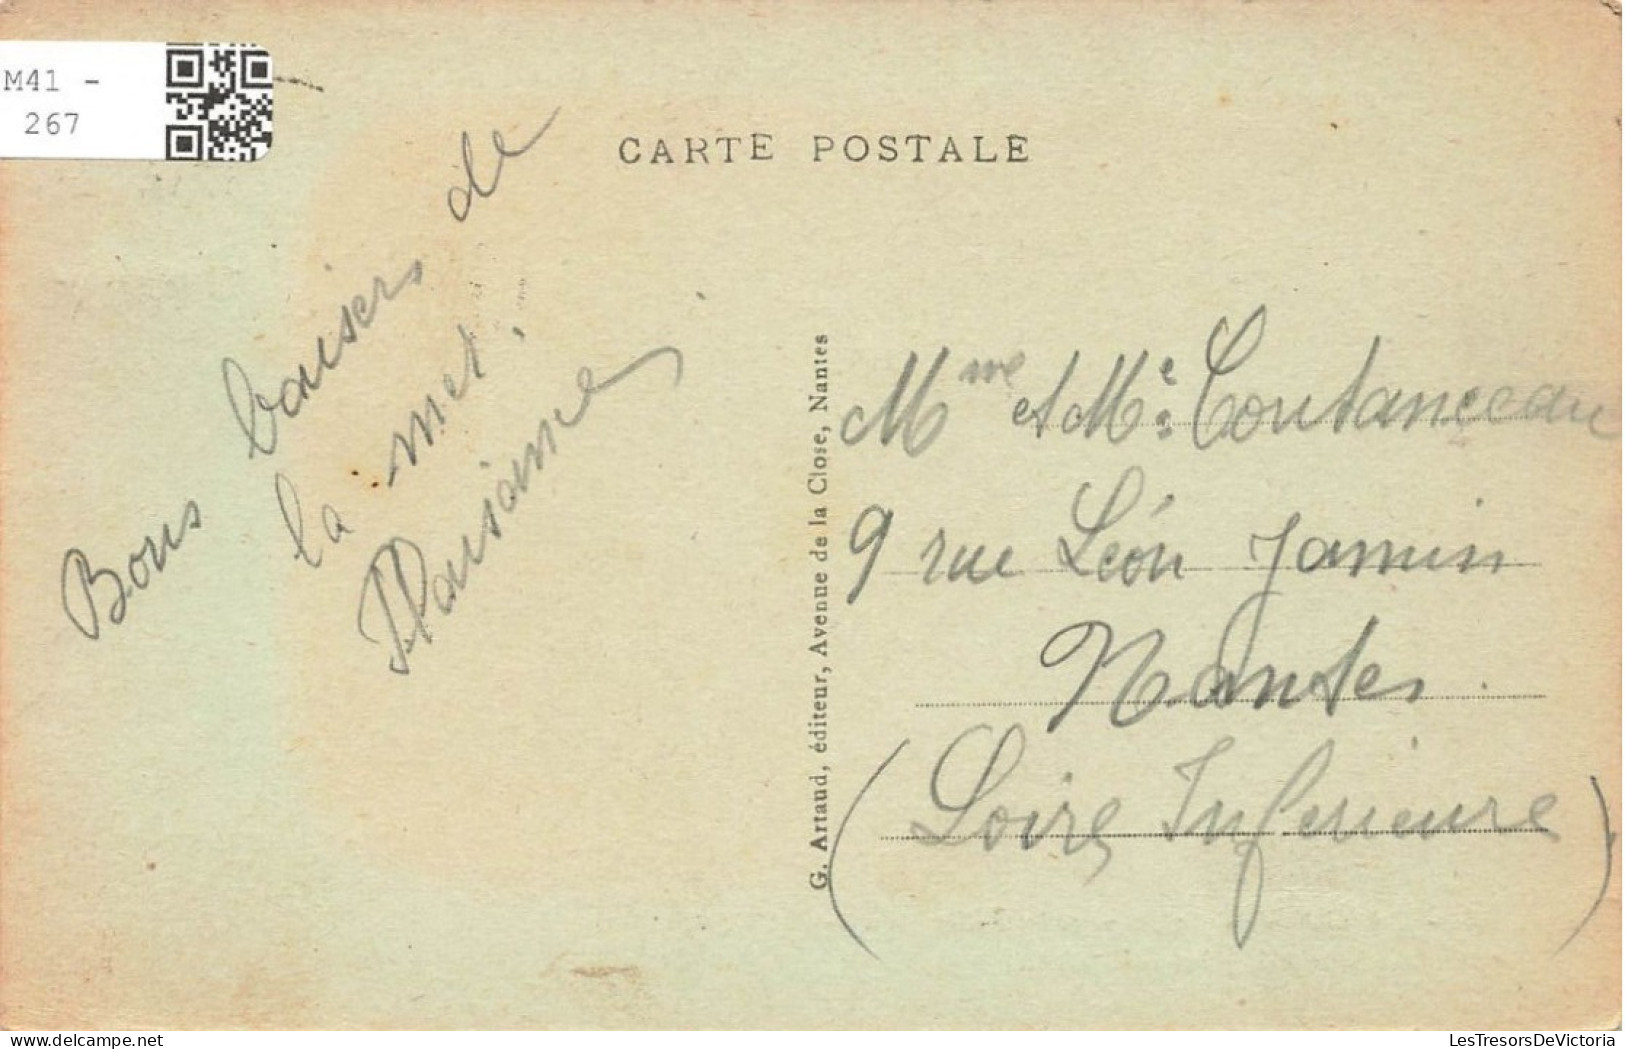 M41 -
267
CARTE POSTALE
Bons baisers de
la mer.
G. Artaud, éditeur, Avenue de la Close, Nantes
Mme et Mr Coutanceau
9 rue Léon Jamin
Nantes.
(Loire Inferieure)
delcampe.net
LesTresorsDeVictoria